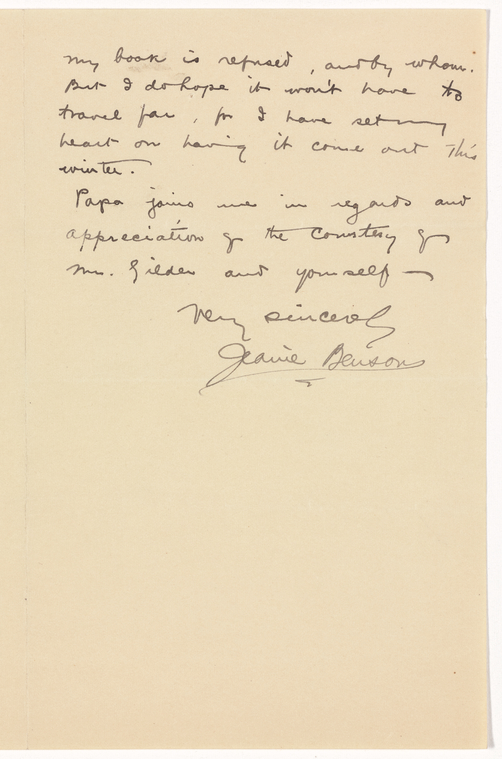 my book is refused, and by whom.
But I do hope it won't have to
travel far, for I have set my
heart on having it come out this
winter.
Papa joins me in regards and
appreciation of the courtesy of
Mr. Gilder and yourself —
Very sincerely
Jeanie Benson